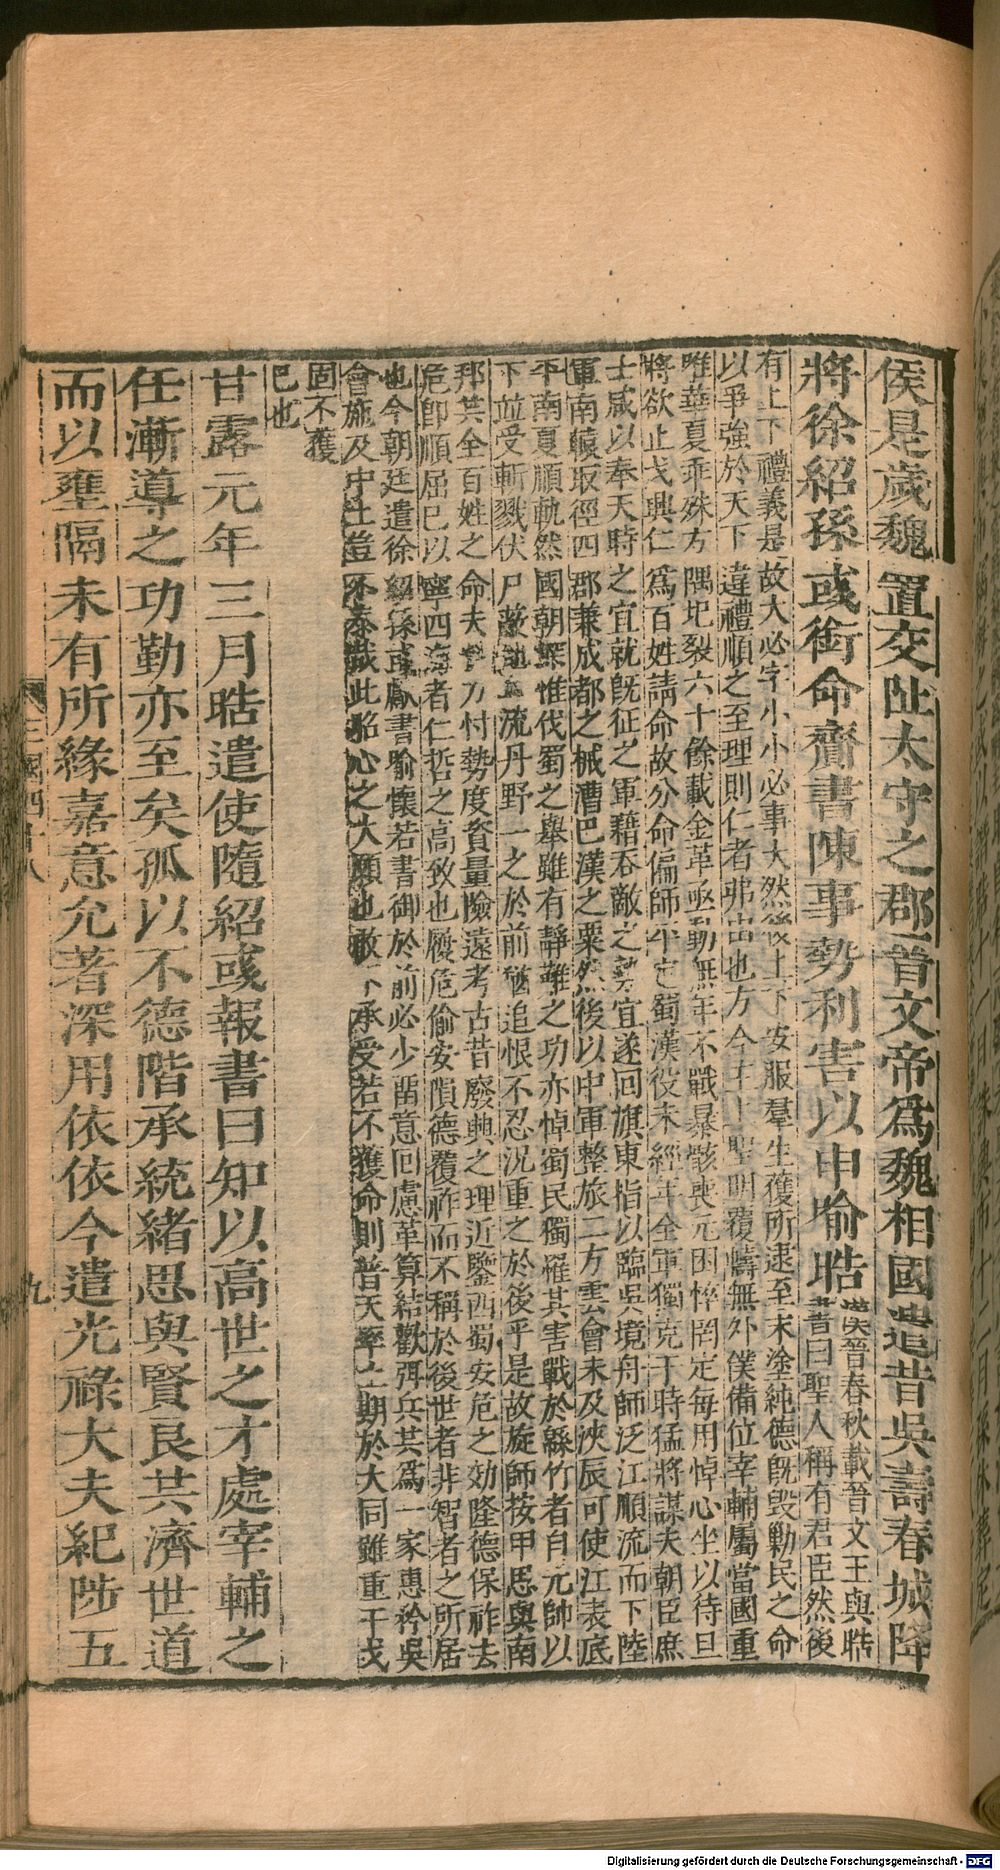 侯是歲魏置交阯太守之郡晉文帝爲魏相國遣昔吳壽春城降
將徐紹孫彧銜命齎書陳事勢利害以申喻晧
漢晉春秋載晉文王與晧
書曰聖人稱有君臣然後
有上下禮義是故大必字小小必事大然後上下安服羣生獲所逮至末塗純德旣毀勦民之命
以爭強於天下違禮順之至理則仁者弗由也方今主上聖明覆幬無外僕備位宰輔屬當國重
唯華夏乖殊方隅圮裂六十餘載金革亟動無年不戰暴骸喪元困悴罔定每用悼心坐以待旦
將欲止戈興仁爲百姓請命故分命偏師平定蜀漢役未經年全軍獨克于時猛將謀夫朝臣庶
士咸以奉天時之宜就旣征之軍藉吞敵之勢宜遂回旗東指以臨吳境舟師泛江順流而下陸
軍南轅取徑四郡兼成都之械漕巴漢之粟然後以中軍整旅二方雲會未及浹辰可使江表底
平南夏順軌然國朝深惟伐蜀之舉雖有靜難之功亦悼蜀民獨罹其害戰於緜竹者自元帥以
下並受斬戮伏尸蔽地血流丹野一之於前猶追恨不忍況重之於後乎是故旋師按甲思與南
邦共全百姓之命夫料力忖勢度資量險遠考古昔廢興之理近鑒西蜀安危之効隆德保祚去
危卽順屈己以寧四海者仁哲之高致也履危偷安隕德覆祚而不稱於後世者非智者之所居
也今朝廷遣徐紹孫彧獻書喻懷若書御於前必少留意回慮革算結歡弭兵共爲一家惠矜吳
會施及中土豈不泰哉此昭心之大願也敢不承受若不獲命則普天率土期於大同雖重干戈
固不獲
已也
甘露元年三月晧遣使隨紹彧報書曰知以高世之才處宰輔之
任漸導之功勤亦至矣孤以不德階承統緒思與賢良共濟世道
而以壅隔未有所緣嘉意允著深用依依今遣光祿大夫紀陟五
三國四十八
九
Digitalisierung gefördert durch die Deutsche Forschungsgemeinschaft - DFG